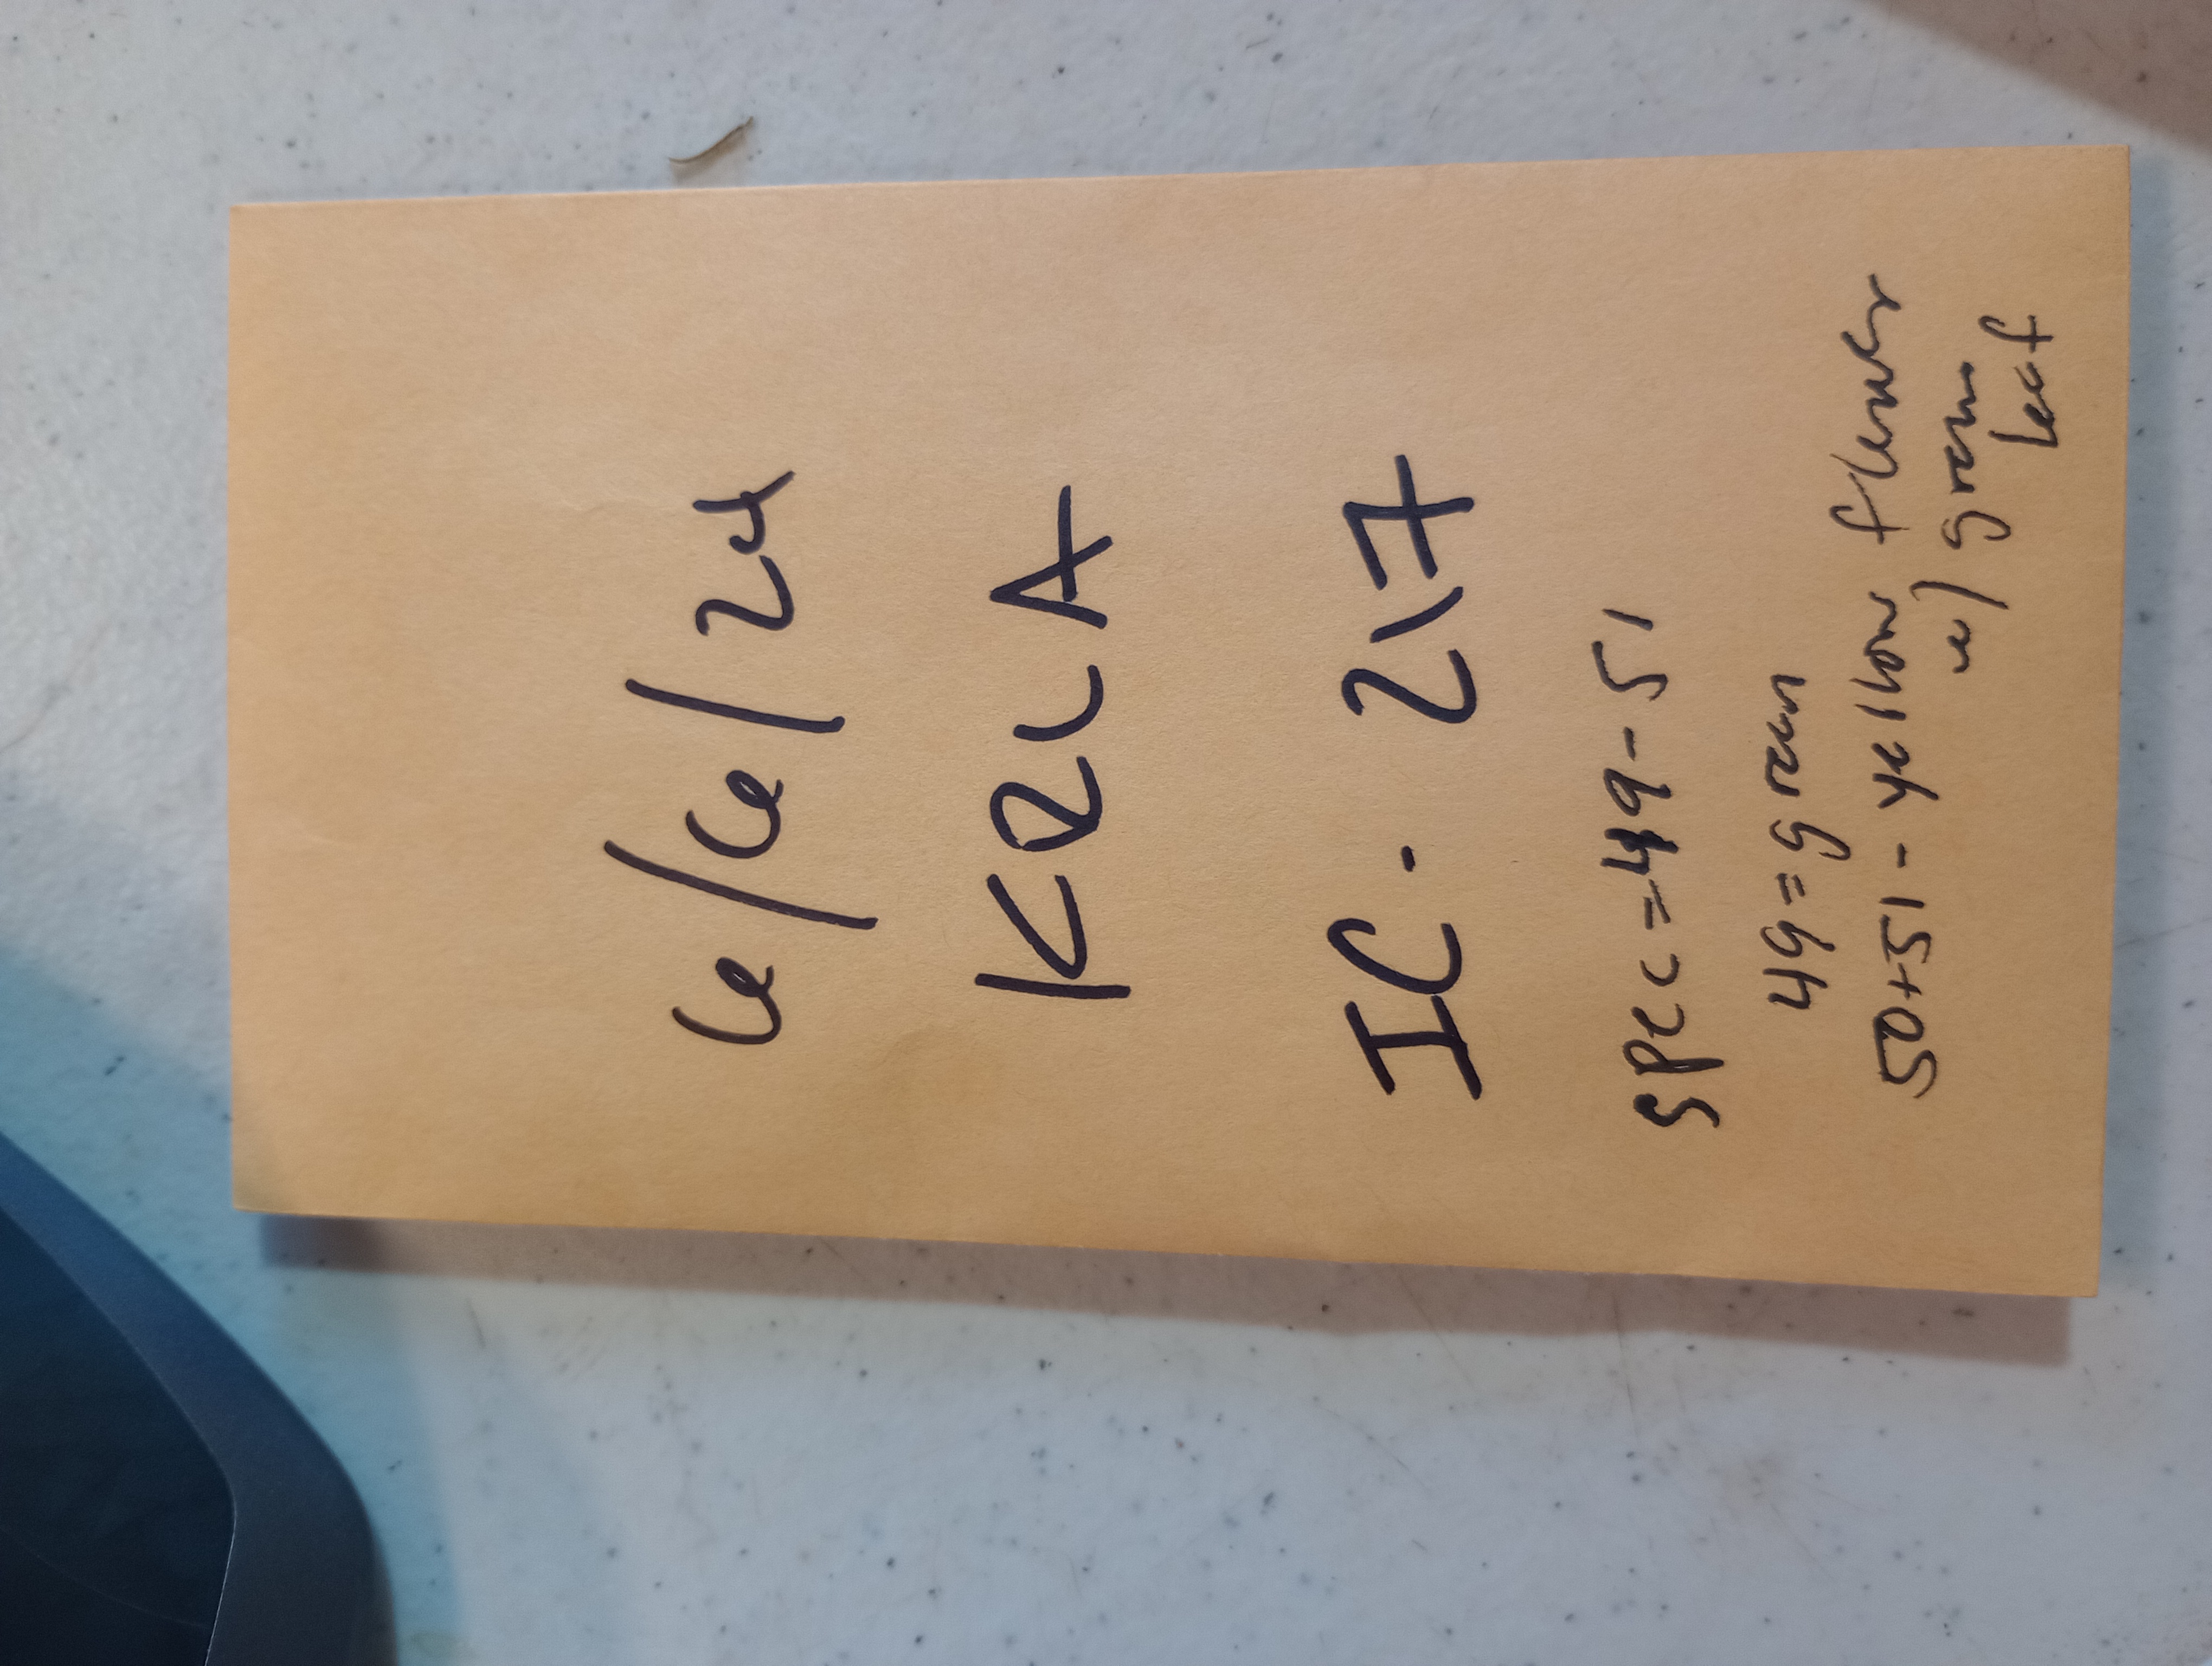 6/6/24
KRLA
IC. 217
spec = 49-51
49 = green
50+51 - yellow flower
w/ green
leaf